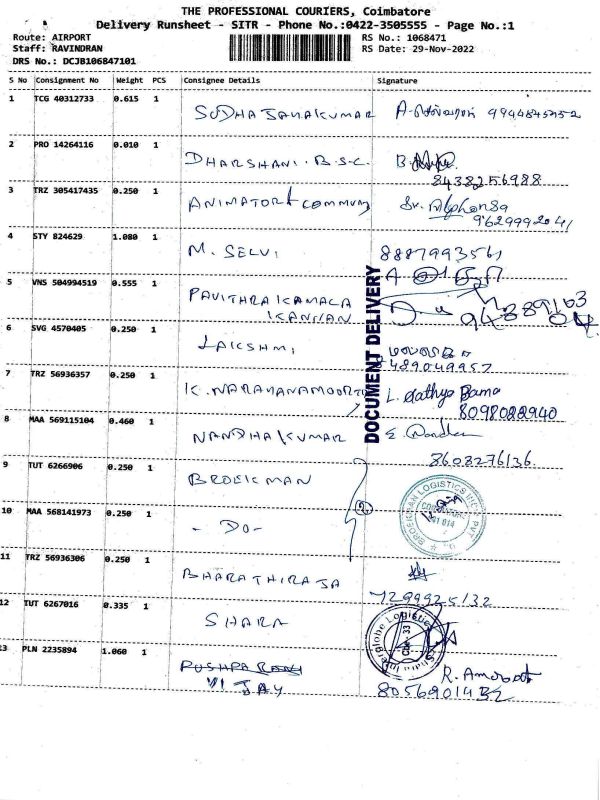 THE PROFESSIONAL COURIERS, Coimbatore
Delivery Runsheet - SITR - Phone No.:0422-3505555 - Page No.:1
Route: AIRPORT RS No.: 1068471
Staff: RAVINDRAN RS Date: 29-Nov-2022
DRS No.: DCJB106847101
S No Consignment No Weight PCS Consignee Details Signature
1 TCG 40312733 0.615 1 SUDHA JANAKUMAR
2 PRO 14264116 0.010 1 DHARSHANI. B.S.C.
8438256988
3 TRZ 305417435 0.250 1 Sr. Alphonsa
9629992041
4 STY 824629 1.080 1 M. SELVI 8887993561
5 VNS 504994519 0.555 1 PAVITHRA KAMALA
6 SVG 4570405 0.250 1 LAKSHMI
8489049957
7 TRZ 56936357 0.250 1 K. NARAYANAMOORTY L. Sathya Bama
8098022940
8 MAA 569115104 0.460 1 NANDHAKUMAR
8608276136
9 TUT 6266906 0.250 1 BROEKMAN
10 MAA 568141973 0.250 1 - DO -
11 TRZ 56936306 0.250 1 BHARATHIRAJA
7299925132
12 TUT 6267016 0.335 1
13 PLN 2235894 1.060 1
VIJAY
DOCUMENT DELIVERY